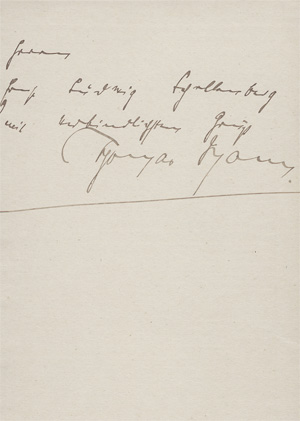 Herrn
Ernst Ludwig Schellenberg
mit verbindlichstem Gruß
Thomas Mann.